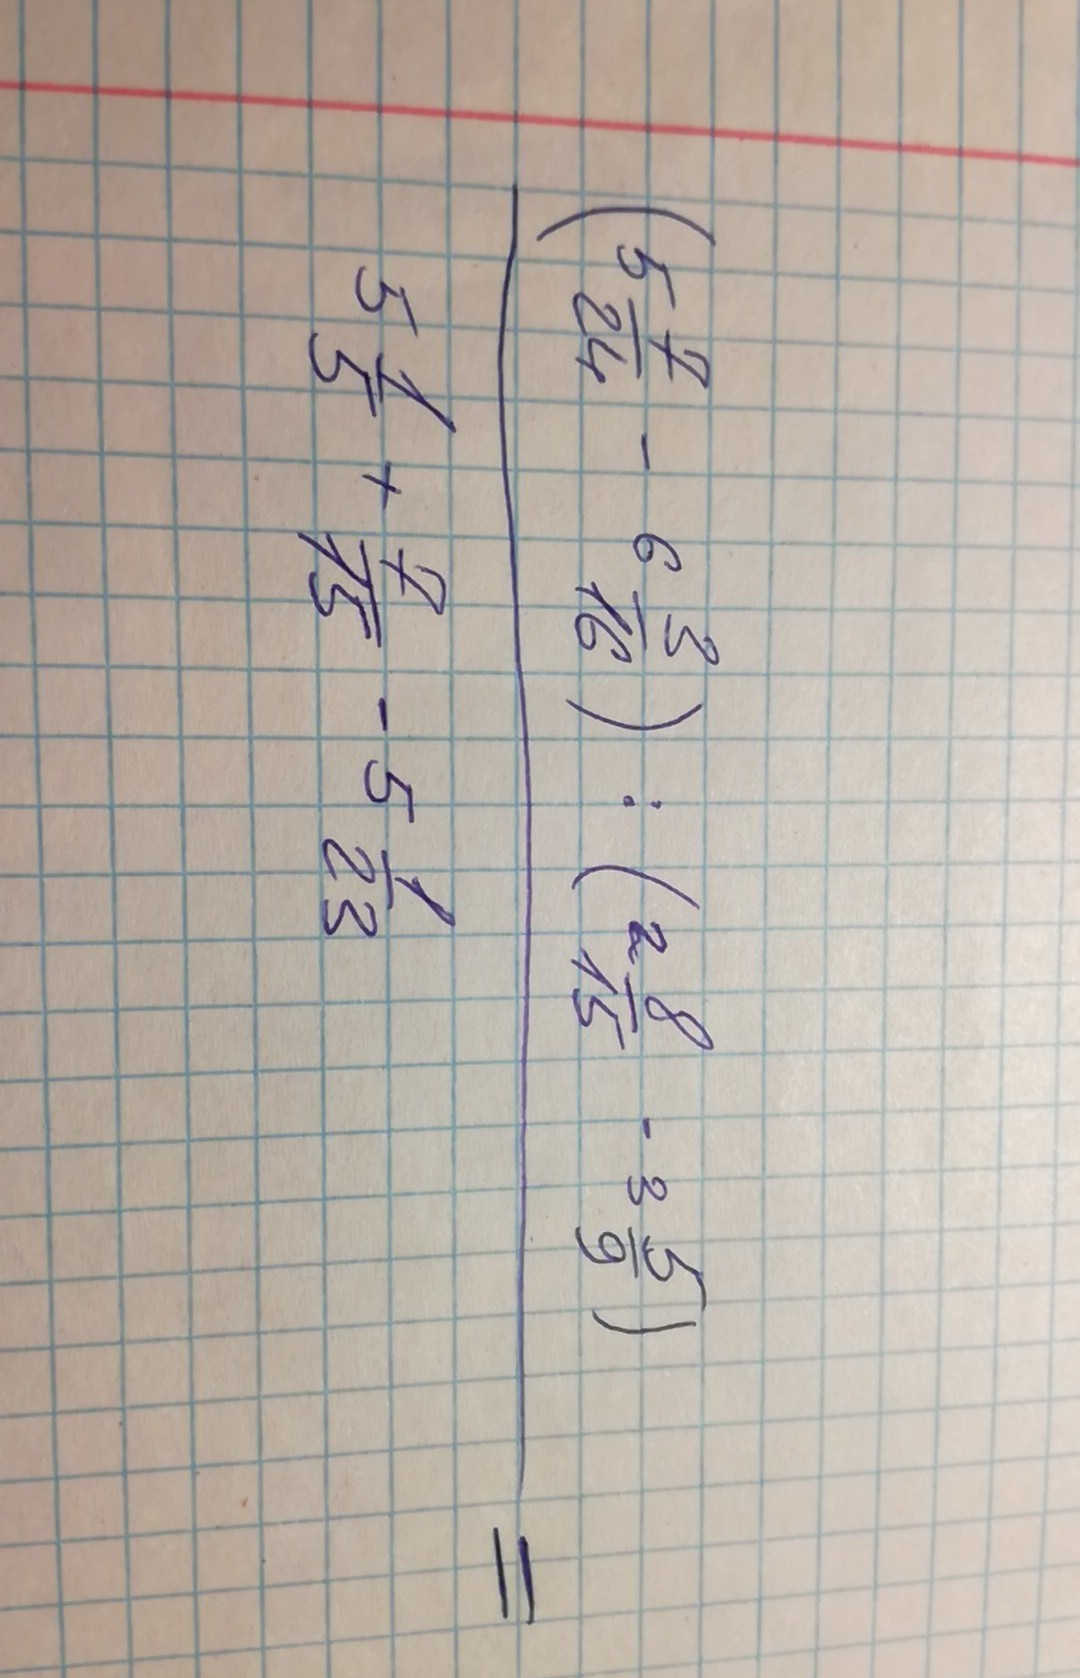 (5 7/24 - 6 3/16) : (2 8/15 - 3 5/9)
5 1/5 + 7/15 - 5 1/23
=